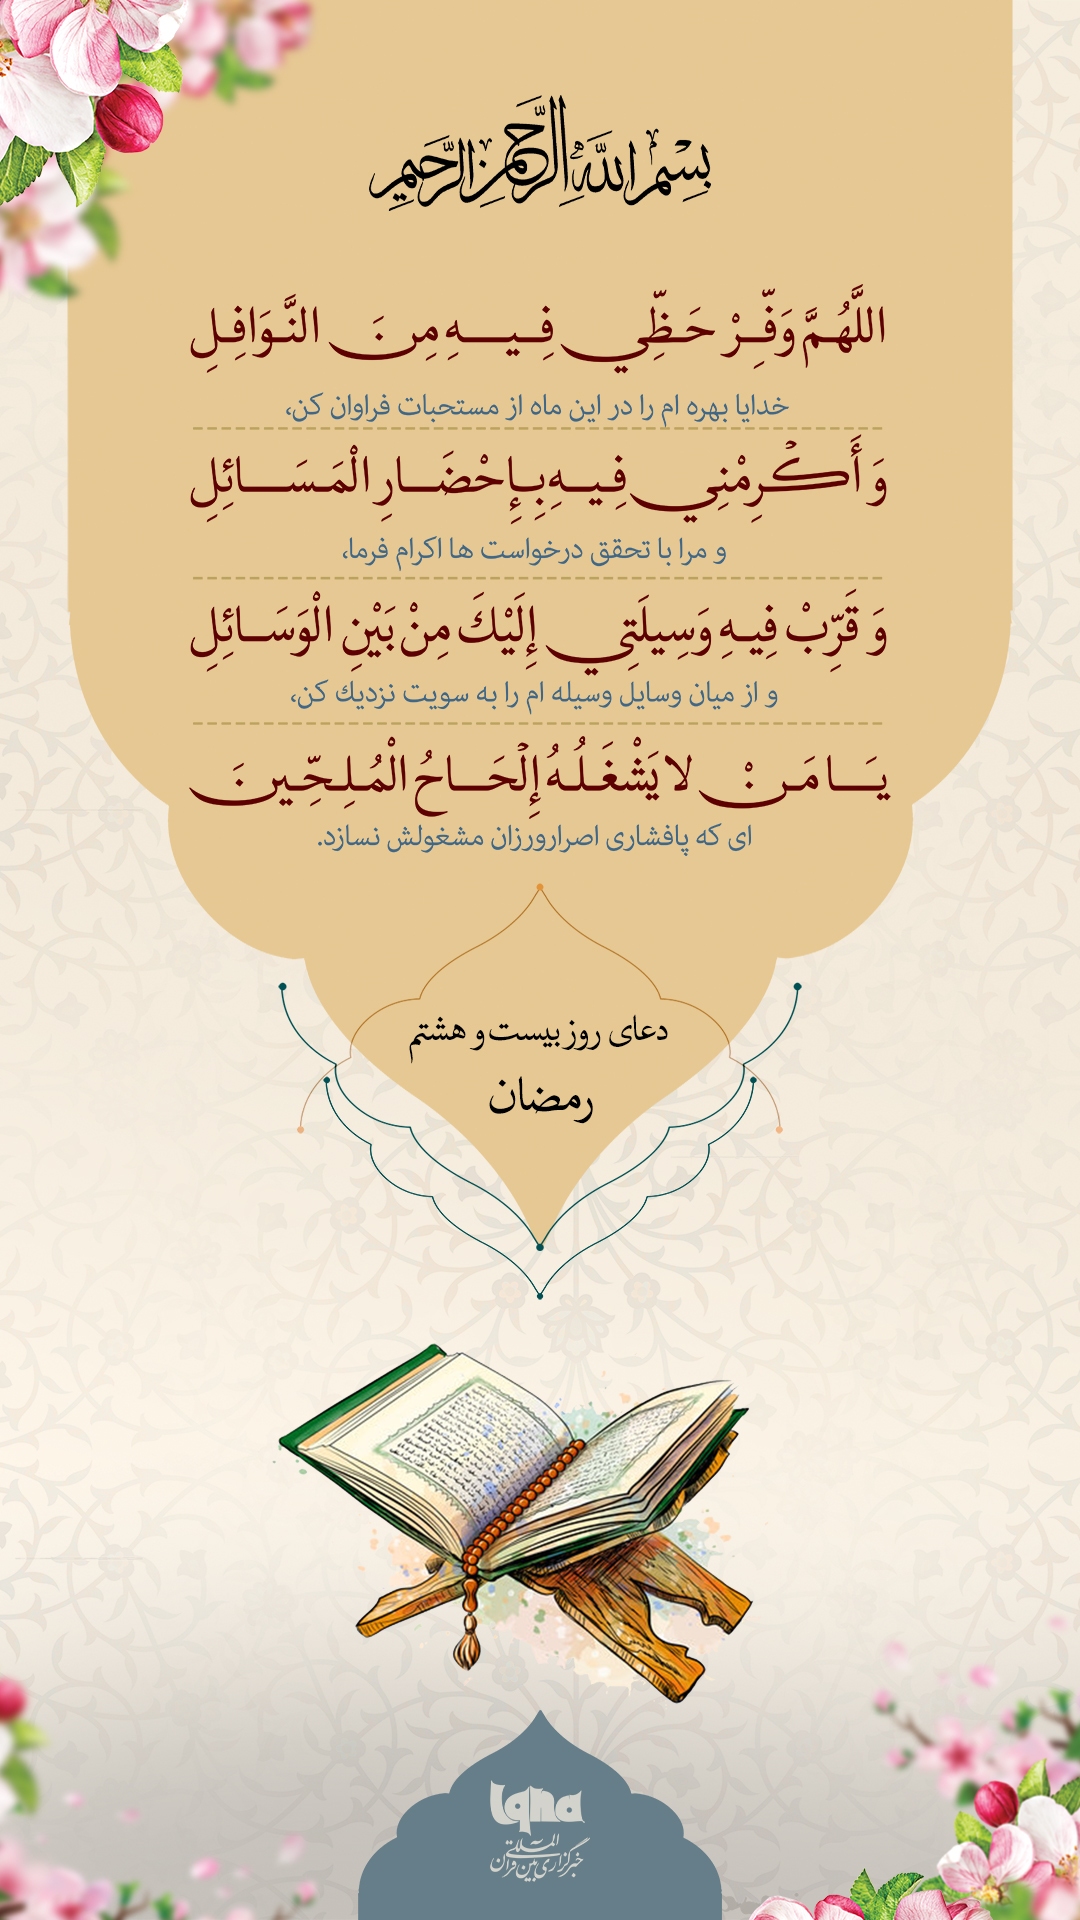 بِسْمِ اللَّهِ الرَّحْمنِ الرَّحيمِ
اللَّهُمَّ وَفِّرْ حَظِّي فِيهِ مِنَ النَّوَافِلِ
خدایا بهره ام را در این ماه از مستحبات فراوان کن،
وَ أَكْرِمْنِي فِيهِ بِإِحْضَارِ الْمَسَائِلِ
و مرا با تحقق درخواست ها اکرام فرما،
وَ قَرِّبْ فِيهِ وَسِيلَتِي إِلَيْكَ مِنْ بَيْنِ الْوَسَائِلِ
و از میان وسایل وسیله ام را به سویت نزدیك کن،
يَا مَنْ لا يَشْغَلُهُ إِلْحَاحُ الْمُلِحِّينَ
ای که پافشاری اصرارورزان مشغولش نسازد.
دعای روز بیست و هشتم
رمضان
Iqna
خبرگزاری بین المللی قرآن